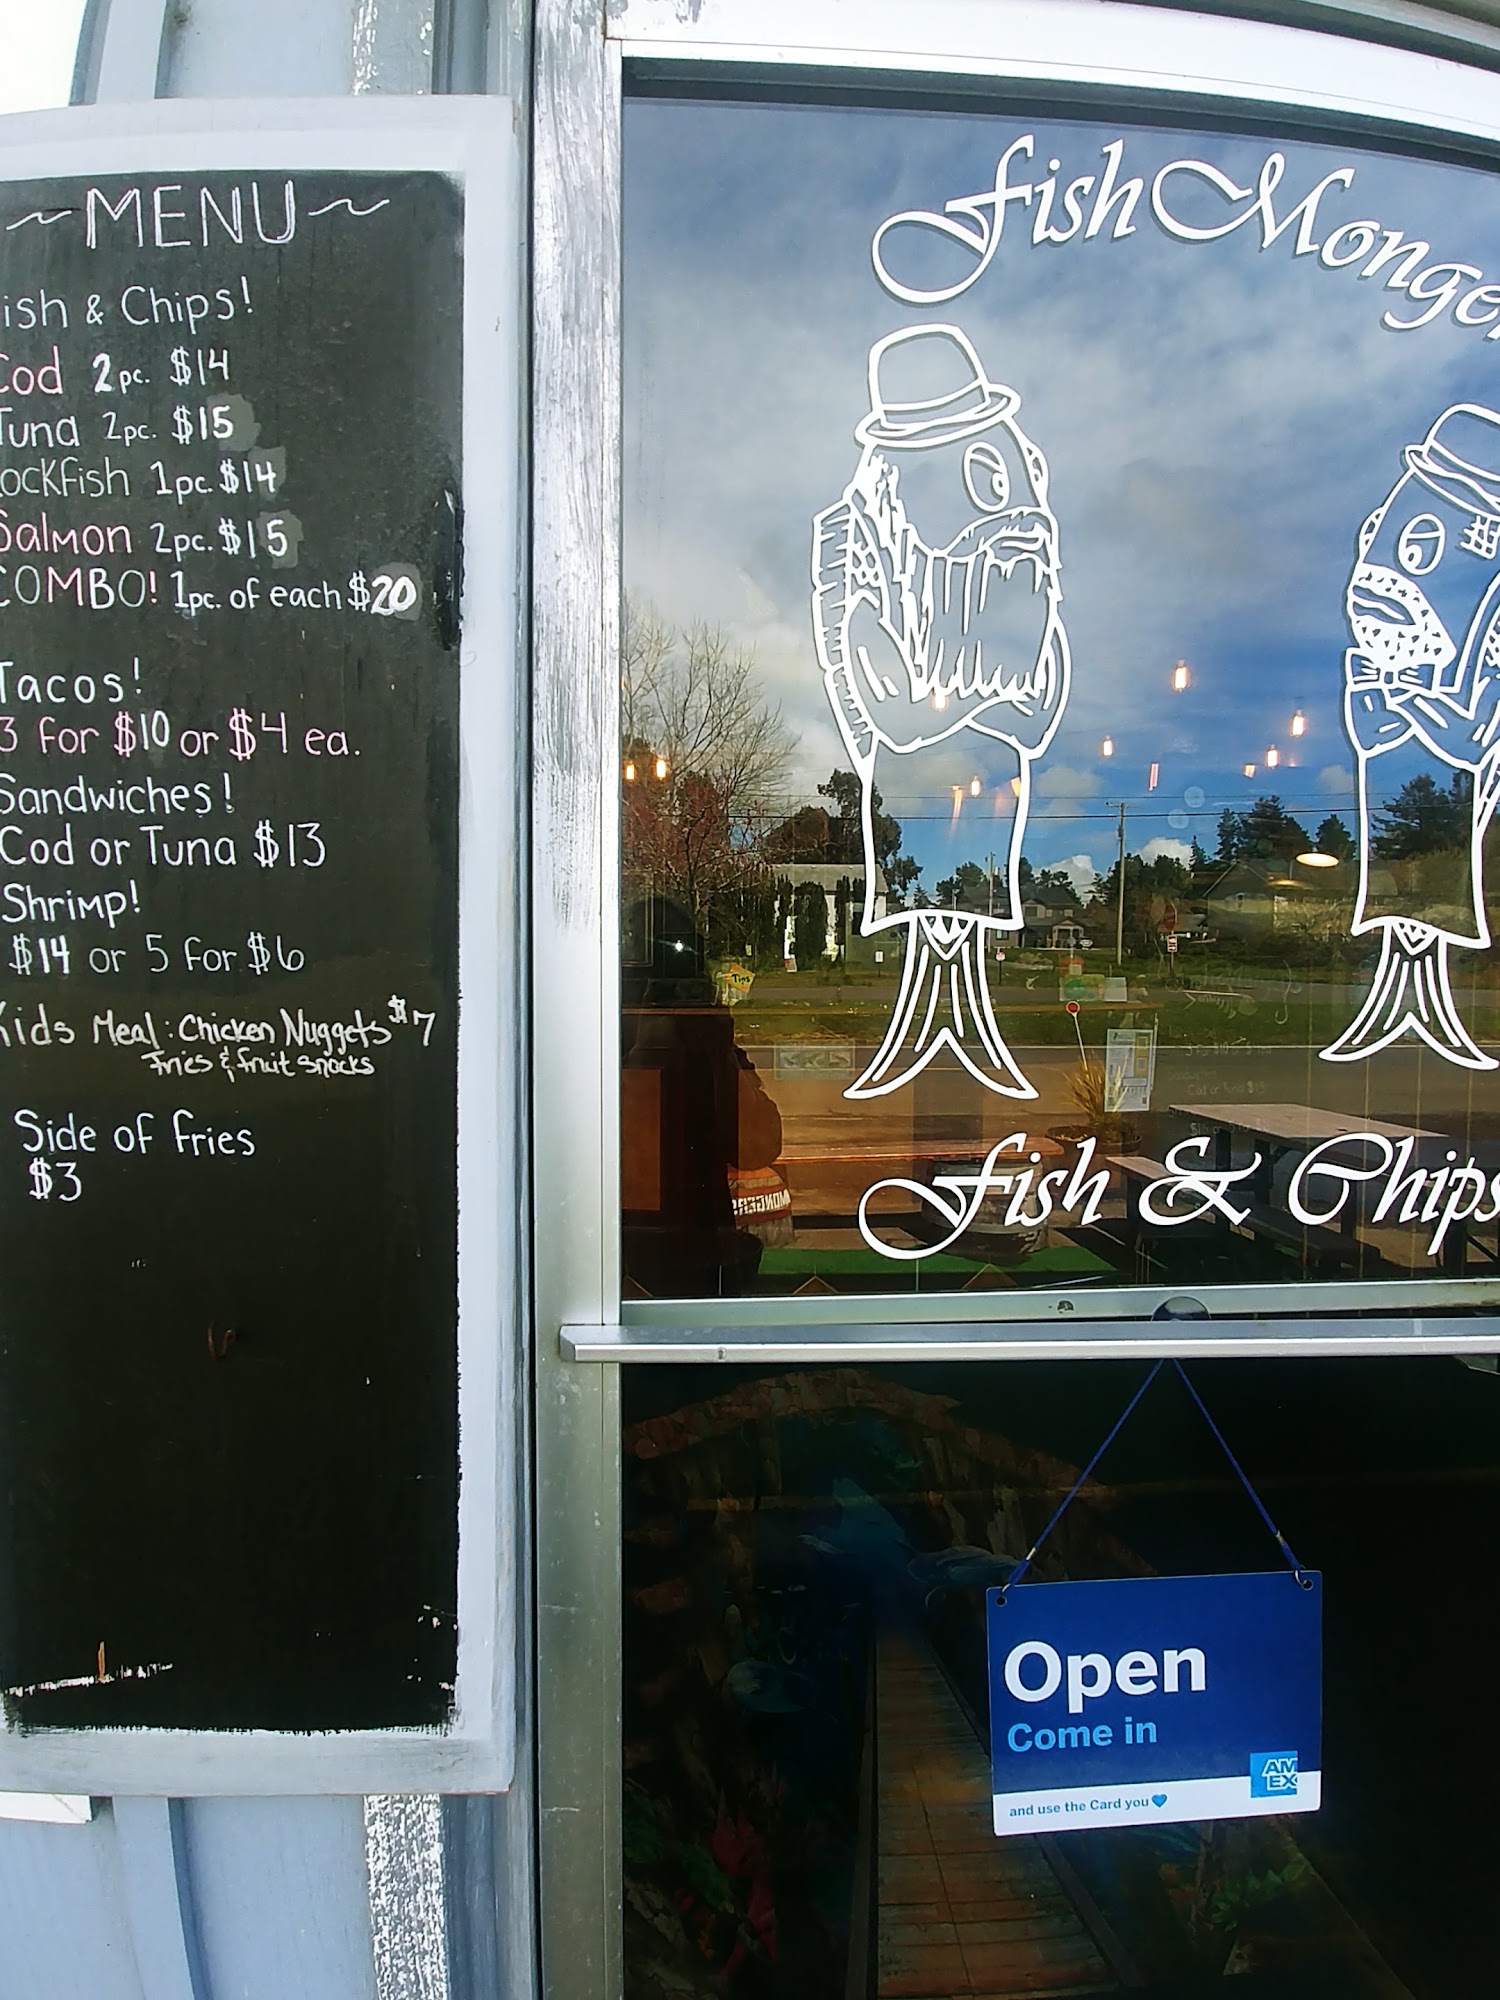 ~MENU~
ish & Chips!
Cod 2pc. $14
Tuna 2pc. $15
ockfish 1pc. $14
Salmon 2pc. $15
COMBO! 1pc. of each $20
Tacos!
3 for $10 or $4 ea.
Sandwiches!
Cod or Tuna $13
Shrimp!
$14 or 5 for $6
Kids Meal: Chicken Nuggets $7
Fries & fruit snacks
Side of fries
$3
FishMonger
Tips
MONGERS
Fish & Chips
Open
Come in
AM
EX
and use the Card you